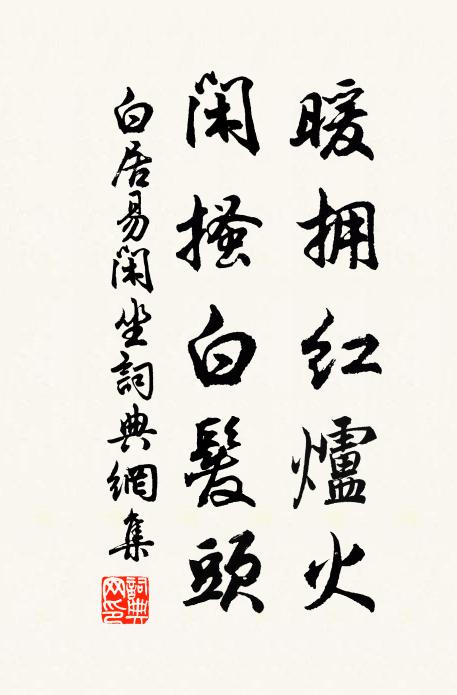 暖拥红爐火
閑搔白髮頭
白居易閑坐詞典網集
詞典網印